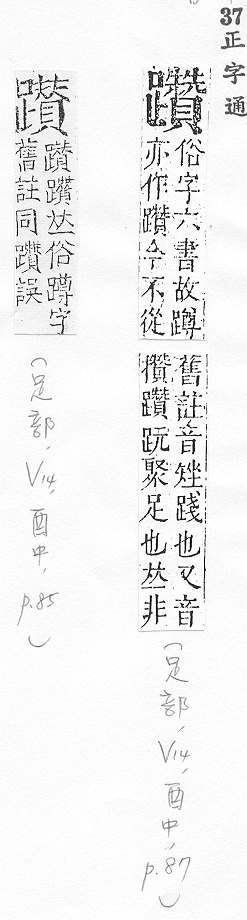 37正字通
躦
俗字六書故蹲
亦作躦今不從
舊註音矬踐也又音
攢躦聚足也𠀤非
(足部, V14, 酉中, p.87)
躦𠀤俗蹲字
舊註同躦誤
(足部, V14, 酉中, p.85)